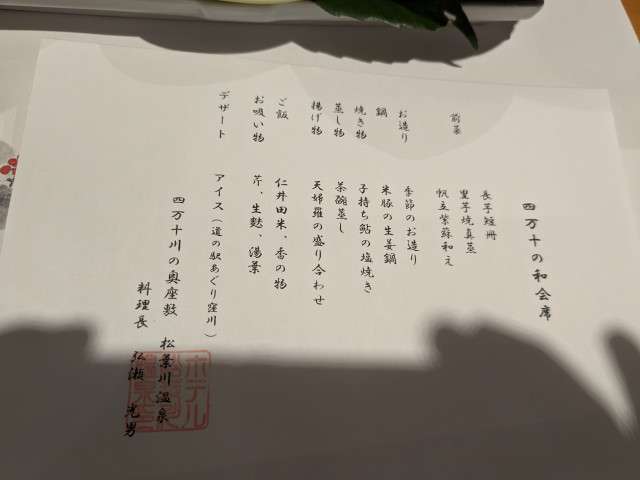 四万十の和会席
前菜
長芋短冊
里芋焼真蒸
帆立紫蘇和え
お造り 季節のお造り
鍋 米豚の生姜鍋
焼き物 子持ち鮎の塩焼き
蒸し物 茶碗蒸し
揚げ物 天婦羅の盛り合わせ
ご飯 仁井田米、香の物
お吸い物 芹、生麩、湯葉
デザート アイス(道の駅あぐり窪川)
四万十川の奥座敷 松葉川温泉
料理長 弘瀬 光男
ホテル